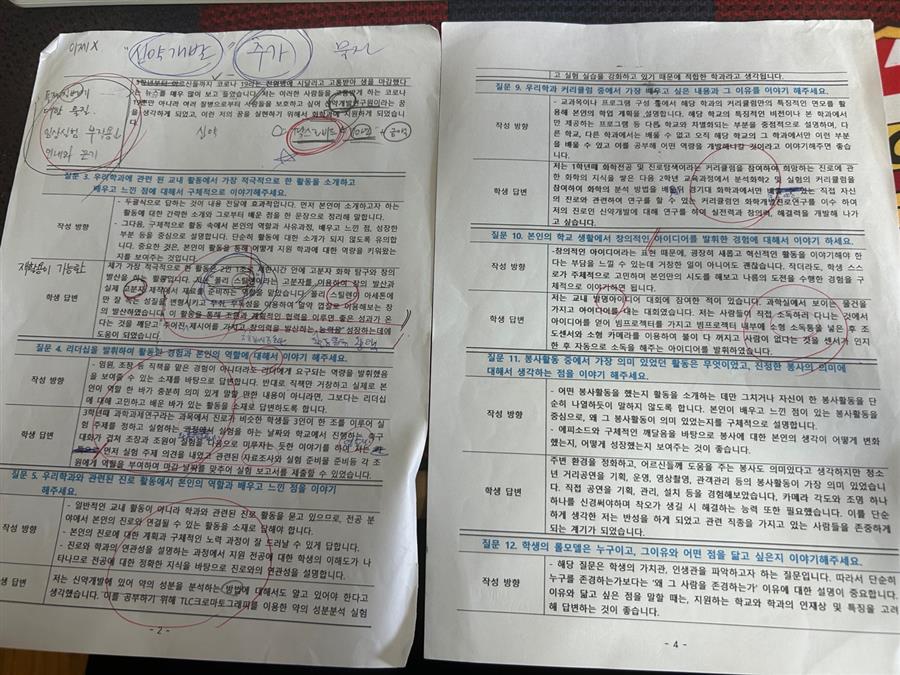 이제 X "신약개발" 추가
3학년부터 어르신들까지 코로나 19라는 전염병에 시달리고 고통받아 생을 마감했다
는 뉴스를 매우 많이 보고 들었습니다. 저는 이러한 사람들을 고통받게 하는 코로나
19뿐만 아니라 여러 질병으로부터 사람들을 보호하고 싶어 신약개발연구원이라는 꿈
을 생각하게 되었고, 이런 저의 꿈을 실현하기 위해서 화학과에 지원하게 되었습니다
신약
질문 3. 우리학과에 관련 된 교내 활동에서 가장 적극적으로 한 활동을 소개하고
배우고 느낀 점에 대해서 구체적으로 이야기해주세요.
작성 방향
- 두괄식으로 답하는 것이 내용 전달에 효과적입니다. 먼저 본인이 소개하고자 하는
활동에 대한 간략한 소개와 그로부터 배운 점을 한 문장으로 정리해 말합니다.
- 그다음, 구체적으로 활동 속에서 본인의 역할과 사유과정, 배우고 느낀 점, 성장한
부분 등을 중심으로 설명합니다. 단순히 활동에 대한 소개가 되지 않도록 유의합
니다. 중요한 것은, 본인이 활동을 통해 어떻게 지원 학과에 대한 역량을 키워왔는
지를 보여주는 것입니다.
학생 답변
제가 가장 적극적으로 한 활동은 2인 1조로 제한시간 안에 고분자 화학 탐구와 창의
발산
폴리 스틸렌이라는 고분자를 이용하여 창의 발산과
실제 고분자 제작에서 재료를 준비하는 역할을 맡았습니다. 폴리 스틸렌이 아세톤에
만 잘 녹는 성질을
발산하였습니다. 이 활동을 통해 소통과 계획적인 협력을 이루면 좋은 성과가 온
다는 것을 깨닫고 주어진 제시어를 가지고 창의력을 발산하는 능력을 성장하는데에
도움이 되었습니다.
질문 4. 리더십을 발휘하여 활동한 경험과 본인의 역할에 대해서 이야기 해주세요.
작성 방향
- 임원, 조장 등 직책을 맡은 경험이 아니더라도 리더에게 요구되는 역량을 발휘했음
을 보여줄 수 있는 소재를 바탕으로 답변합니다. 반대로 직책만 거창하고 실제로 본
인이 역할 한 바가 충분히 의미 있게 말할 만한 내용이 아니라면, 그보다는 리더십
에 대해 고민하고 배운 바가 있는 활동을 소재로 답변하도록 합니다.
학생 답변
3학년때 과학과제연구라는 과목에서 진로가 비슷한 학생들 3인이 한 조를 이루어 실
험 주제를 정하고 실험하는 과정에서 실험을 하는 날짜와 학교에서 진행하는
대화가 겹쳐 조장과 조원이 실험을 다음으로 미루자는 듯한 이야기를 하여 저는
먼저 실험 주제 의견을 내었고 관련된 자료조사와 실험 준비물 준비등 각 조
원에게 역할을 부여하여 마감 날짜를 맞추어 실험 보고서를 제출할 수 있었습니다.
질문 5. 우리학과와 관련된 진로 활동에서 본인의 역할과 배우고 느낀 점을 이야기
해주세요.
작성 방향
- 일반적인 교내 활동이 아니라 학과와 관련된 진로 활동을 묻고 있으므로, 전공 분
야에서 본인의 진로와 연결될 수 있는 활동을 소재로 답해야 합니다.
- 본인의 진로에 대한 계획과 구체적인 노력 과정이 잘 드러날 수 있게 답합니다.
- 진로와 학과의 연관성을 설명하는 과정에서 지원 전공에 대한 학생의 이해도가 나
타나므로 전공에 대한 정확한 지식을 바탕으로 진로와의 연관성을 설명합니다.
학생 답변
저는 신약개발에 있어 약의 성분을 분석하는 방법에 대해서도 알고 있어야 한다고
생각했습니다. 이를 공부하기 위해 TLC크로마토그래피를 이용한 약의 성분분석 실험
- 2 -
고 실험 실습을 강화하고 있기 때문에 적합한 학과라고 생각됩니다.
질문 9. 우리학과 커리큘럼 중에서 가장 배우고 싶은 내용과 그 이유를 이야기 해주세요.
작성 방향
- 교과목이나 프로그램 구성 틀에서 해당 학과의 커리큘럼만의 특징적인 면모를 활
용해 본인의 학업 계획을 설명합니다. 해당 학과의 특징적인 비전이나 본 학과에서
만 제공하는 프로그램 등 다른 학과와 차별화되는 부분을 중점적으로 설명하며, 다
른 학교, 다른 학과에서는 배울 수 없고 오직 해당 학교의 그 학과에서만 이런 부분
을 배울 수 있고 이를 공부해 어떤 역량을 개발해나갈 것이라고 이야기해주는 것이
좋습니다.
학생 답변
저는 1학년때 화학전공 및 진로탐색이라는 커리큘럼을 참여하여 희망하는 진로에 관
한 화학의 지식을 쌓은 다음 2학년 교육과정에서 분석화학2 및 실험의 커리큘럼을
참여하여 화학의 분석 방법을 배운뒤 경기대 화학과에서만 배울 있는 직접 자신
의 진로와 연관하여 연구를 할 수 있는 커리큘럼인 화학개발진로연구를 이수 하여
저의 진로인 신약개발에 대해 연구를 하여 실전력과 창의력, 해결력을 개발해 나가
고 싶습니다.
질문 10. 본인의 학교 생활에서 창의적인 아이디어를 발휘한 경험에 대해서 이야기 하세요.
작성 방향
-창의적인 아이디어라는 표현 때문에, 굉장히 새롭고 혁신적인 활동을 이야기해야 한
다는 부담을 느낄 수 있는데 거창한 일이 아니어도 괜찮습니다. 작더라도, 학생 스스
로가 주체적으로 고민하여 본인만의 시도를 해보고 나름의 도전을 수행한 경험을 구
체적으로 이야기하면 됩니다.
학생 답변
저는 교내 발명아이디어 대회에 참여한 적이 있습니다. 과학실에서 보이는 물건을
가지고 아이디어를 내는 대회였습니다. 저는 사람들이 직접 소독하러 다니는 것에서
아이디어를 얻어 빔프로젝터를 가지고 빔프로젝터 내부에 소형 소독통을 넣은 후 조
도센서와 소형 카메라를 이용하여 불이 다 꺼지고 사람이 없다는 것을 센서가 인지
한 후 자동으로 소독을 해주는 아이디어를 발휘하였습니다.
질문 11. 봉사활동 중에서 가장 의미 있었던 활동은 무엇이었고, 진정한 봉사의 의미에
대해서 생각하는 점을 이야기 해주세요.
작성 방향
- 어떤 봉사활동을 했는지 활동을 소개하는 데만 그치거나 자신이 한 봉사활동을 단
순히 나열하듯이 말하지 않도록 합니다. 본인이 배우고 느낀 점이 있는 봉사활동을
중심으로, 왜 그 봉사활동이 의미 있었는지를 구체적으로 설명합니다.
- 에피소드와 구체적인 깨달음을 바탕으로 봉사에 대한 본인의 생각이 어떻게 변화
했는지, 어떻게 성장했는지 보여주는 것이 좋습니다.
학생 답변
주변 환경을 정화하고, 어르신들께 도움을 주는 봉사도 의미있다고 생각하지만 청소
년 거리공연을 기획, 운영, 영상촬영, 관객관리 등의 봉사활동이 가장 의미 있었습니
다. 직접 공연을 기획, 관리, 설치 등을 경험해보았습니다. 카메라 각도와 조명 하나
하나를 신경써야하며 착오가 생길 시 해결하는 능력 또한 필요했습니다. 이를 단순
하게 생각한 저는 반성을 하게 되었고 관련 직종을 가지고 있는 사람들을 존중하게
되는 계기가 되었습니다.
질문 12. 학생의 롤모델은 누구이고, 그이유와 어떤 점을 닮고 싶은지 이야기해주세요.
작성 방향
- 해당 질문은 학생의 가치관, 인생관을 파악하고자 하는 질문입니다. 따라서 단순히
누구를 존경하는가보다는 '왜 그 사람을 존경하는가' 이유에 대한 설명이 중요합니다.
이유와 닮고 싶은 점을 말할 때는, 지원하는 학교와 학과의 인재상 및 특징을 고려
해 답변하는 것이 좋습니다.
- 4 -